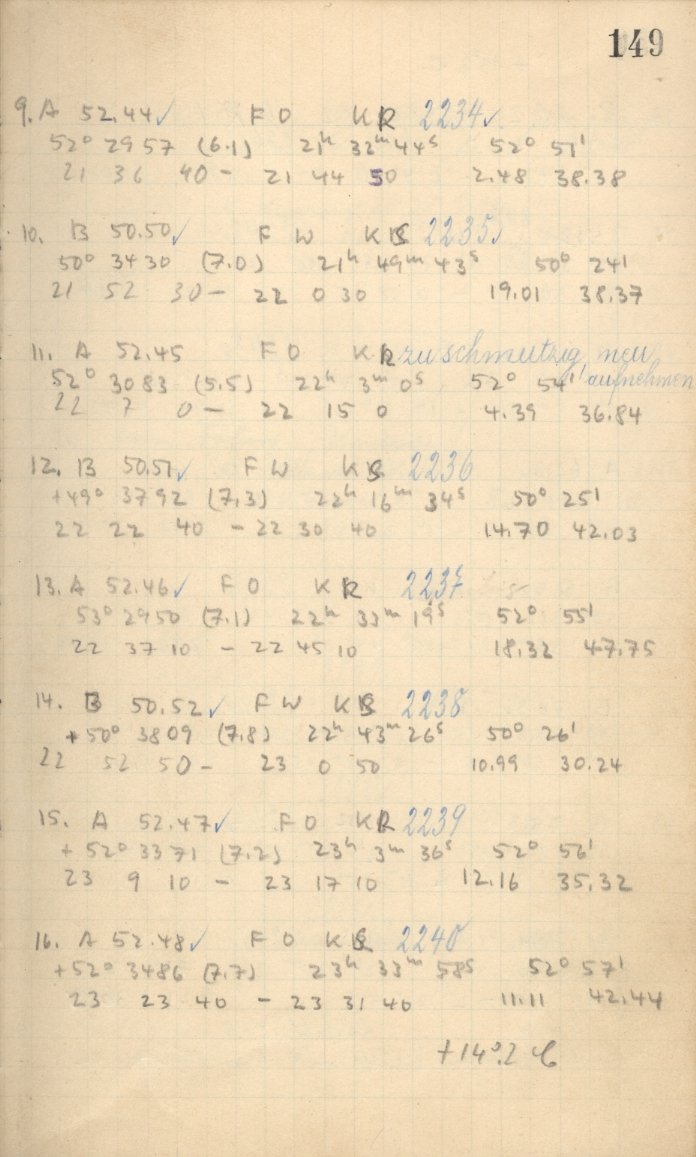 149
9. A 52.44 ✓ F O K R 2234 ✓
52° 2957 (6.1) 21h 32m 44s 52° 51'
21 36 40 - 21 44 50 2.48 38.38
10. B 50.50 ✓ F W K S 2235 ✓
50° 3430 (7.0) 21h 49m 43s 50° 24'
21 52 30 - 22 0 30 19.01 38.37
11. A 52.45 F O K R zu schmutzig, neu
52° 3083 (5.5) 22h 3m 0s 52° 54' aufnehmen
22 7 0 - 22 15 0 4.39 36.84
12. B 50.51 ✓ F W K S 2236
+49° 3792 (7.3) 22h 16m 34s 50° 25'
22 22 40 - 22 30 40 14.70 42.03
13. A 52.46 ✓ F O K R 2237
53° 2950 (7.1) 22h 33m 19s 52° 55'
22 37 10 - 22 45 10 18.32 47.75
14. B 50.52 ✓ F W K S 2238
+50° 3809 (7.8) 22h 43m 26s 50° 26'
22 52 50 - 23 0 50 10.99 30.24
15. A 52.47 ✓ F O K R 2239
+52° 3371 (7.2) 23h 3m 36s 52° 56'
23 9 10 - 23 17 10 12.16 35.32
16. A 52.48 ✓ F O K 2240
+52° 3486 (7.7) 23h 33m 58s 52° 57'
23 23 40 - 23 31 40 11.11 42.44
+14°.2 C